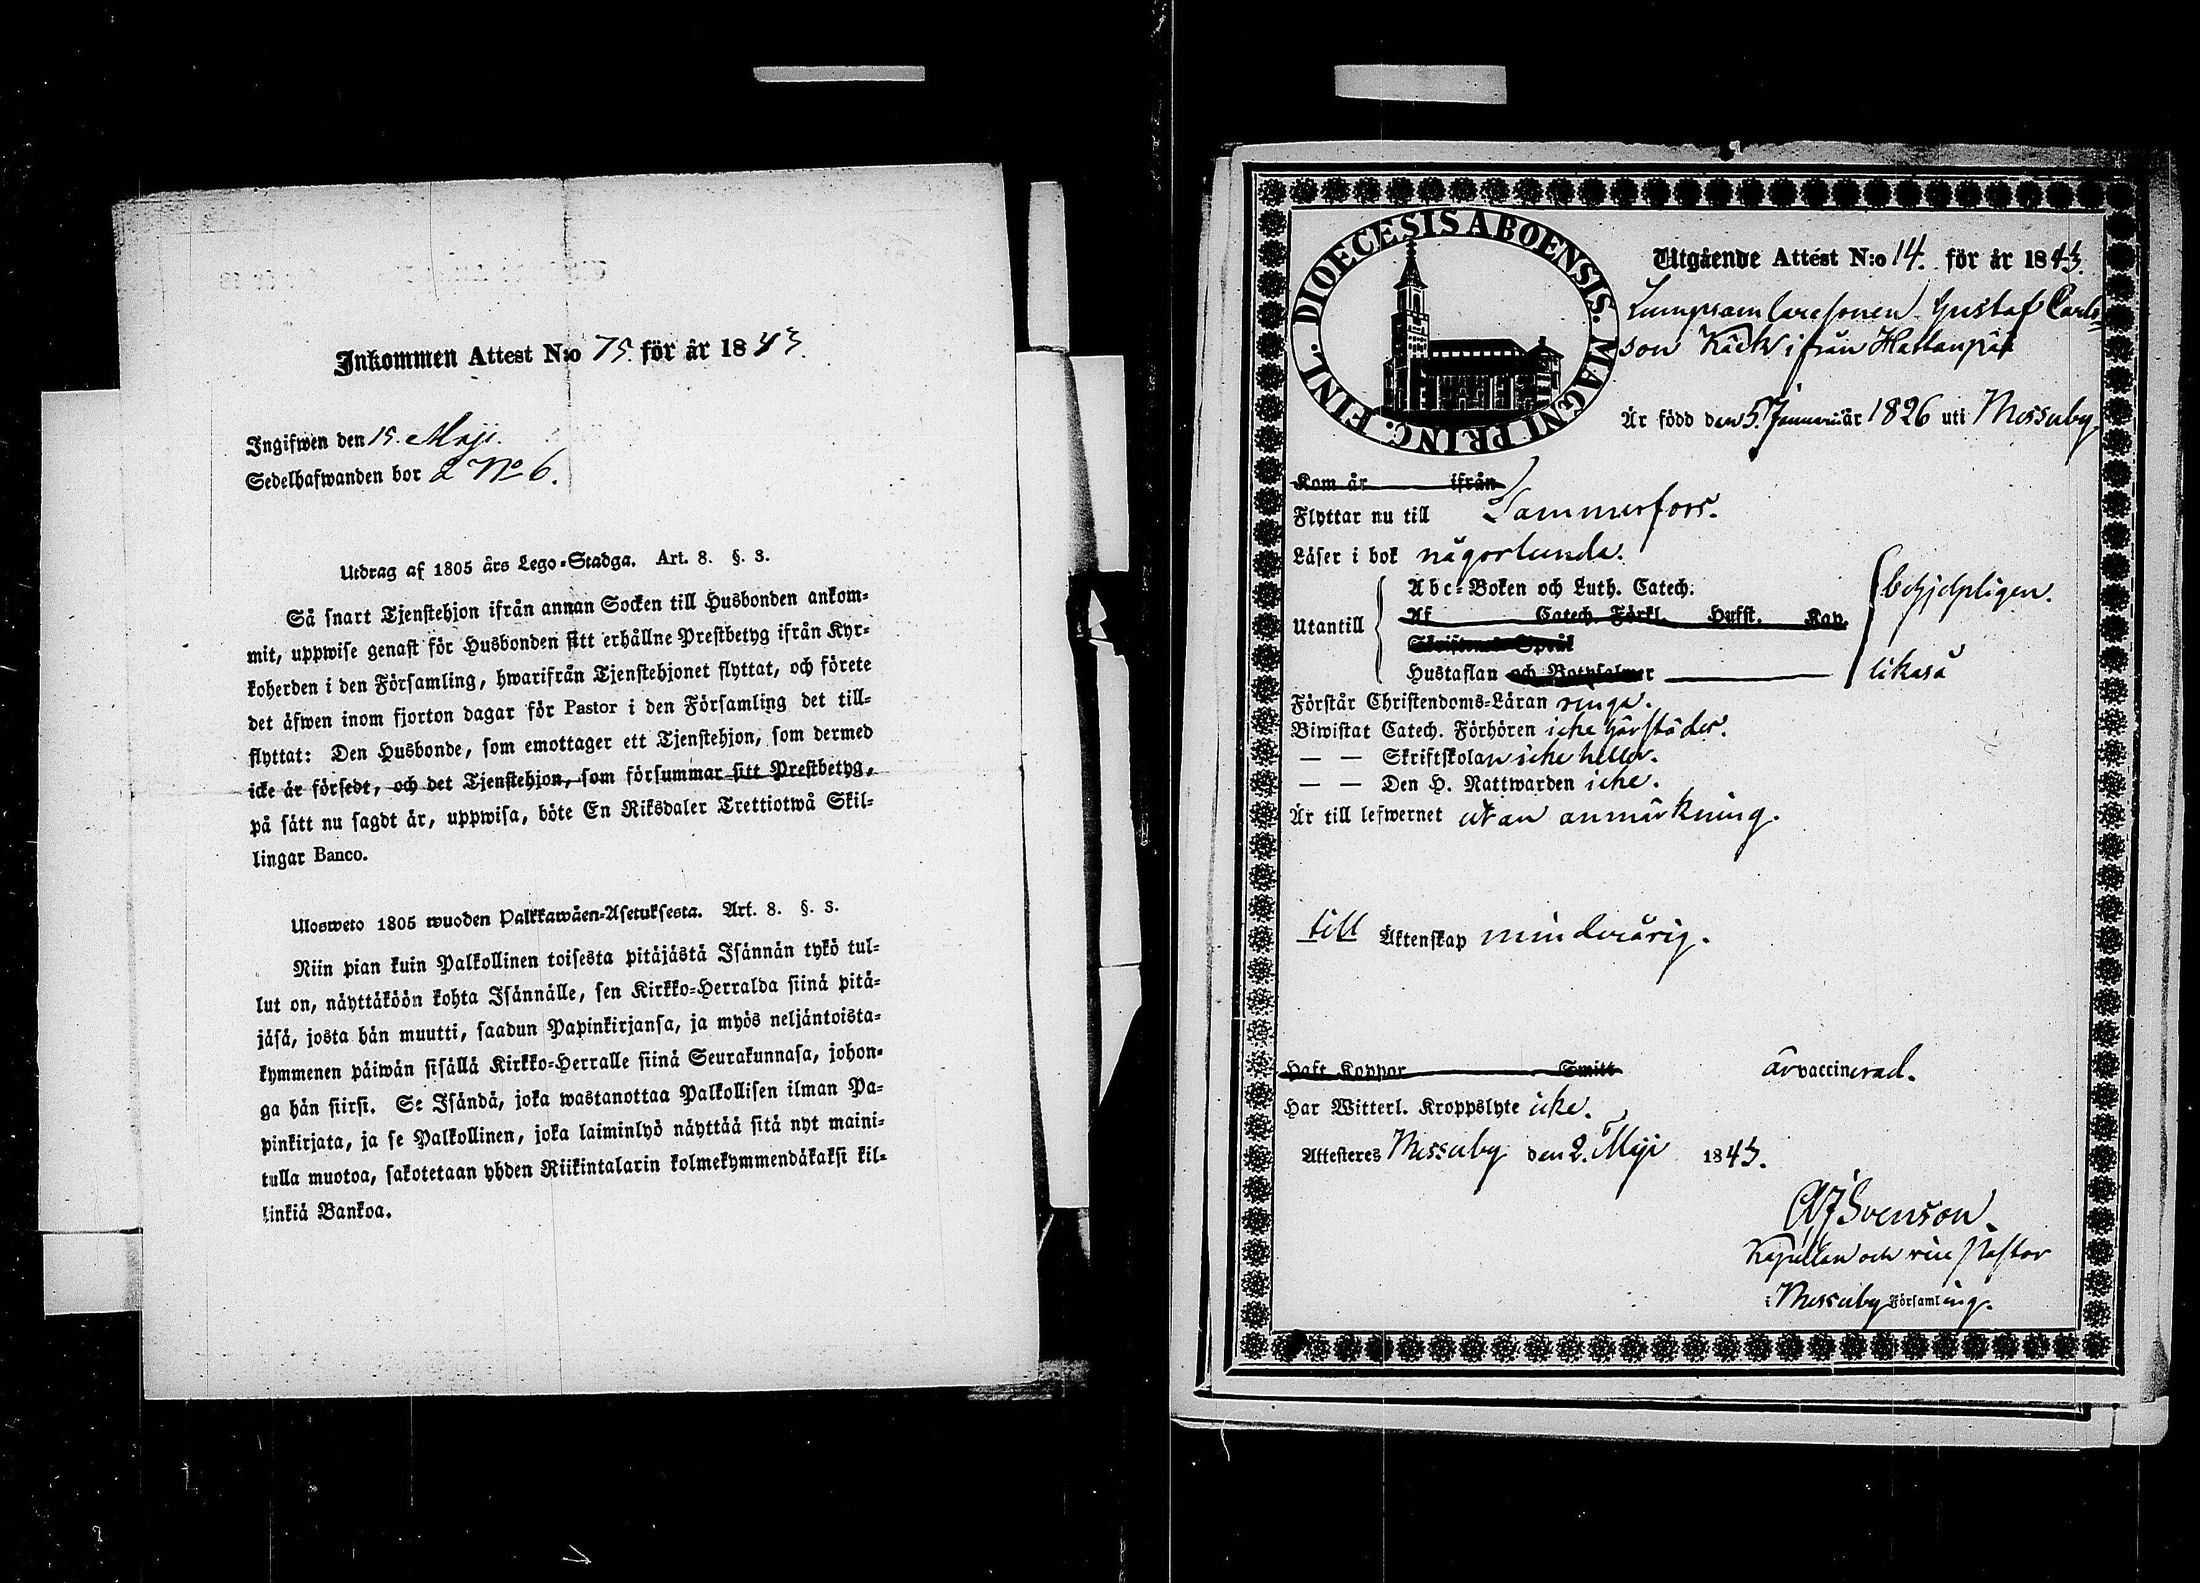 Inkommen Attest N:o 75. för år 1843.
Ingifwen den 15. Maji.
Sedelhafwanden bor å No 6.
Utdrag af 1805 års Lego-Stadga. Art. 8. §. 3.
Så snart Tjenstehjon ifrån annan Socken till Husbonden ankom-
mit, uppwise genast för Husbonden sitt erhållne Prestbetyg ifrån Kyr-
koherden i den Församling, hwarifrån Tjenstehjonet flyttat, och förete
det äfwen inom fjorton dagar för Pastor i den Församling det till-
flyttat: Den Husbonde, som emottager ett Tjenstehjon, som dermed
icke är försedt, och det Tjenstehjon, som försummar sitt Prestbetyg,
på sätt nu sagdt är, uppwisa, böte En Riksdaler Trettiotwå Skil-
lingar Banco.
Ulosweto 1805 wuoden Palkkawäen-Asetuksesta. Art. 8. §. 3.
Niin pian kuin Palkollinen toisesta pitäjästä Isännän tykö tul-
lut on, näyttäköön kohta Isännälle, sen Kirkko-Herralda siinä pitä-
jäsä, josta hän muutti, saadun Papinkirjansa, ja myös neljäntoista-
kymmenen päiwän sisällä Kirkko-Herralle siinä Seurakunnasa, johon-
ga hän siirsi. Se Isändä, joka wastanottaa Palkollisen ilman Pa-
pinkirjata, ja se Palkollinen, joka laiminlyö näyttää sitä nyt maini-
tulla muotoa, sakotetaan yhden Riikintalarin kolmekymmendäkaksi kil-
linkiä Bankoa.
DIOECESIS ABOENSIS. MAGNI PRINC. FINL.
Utgående Attest N:o 14. för år 1843.
Lumpsamlaresonen Gustaf Carls-
son Käck ifrån Hattanpää
Är född den 5. Januari år 1826 uti Messuby
Kom år ifrån
Flyttar nu till Tammerfors.
Läser i bok någorlunda.
Abc-Boken och Luth. Catech.
Utantill { Af Catech. Förkl. Hufst. Kap. behjelpligen.
Skriftenes Språk
Hustaflan och Botpsalmer likaså
Förstår Christendoms-Läran ringa.
Biwistat Catech. Förhören icke härstädes.
— — Skriftskolan icke heller.
— — Den H. Nattwarden icke.
Är till lefwernet utan anmärkning.
till Äktenskap minderårig.
Haft Koppor Smitt är vaccinerad.
Har Witterl. Kroppslyte icke.
Attesteres Messuby den 2. Maji 1843.
Svenson
Kapellan och vice Pastor
i Messuby Församling.